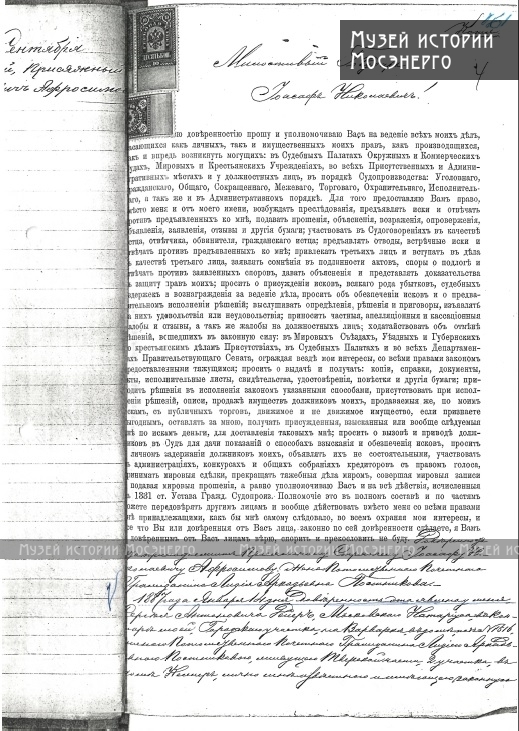 Музей истории
Мосэнерго
Сентября
й, Присяжный
ичъ Афросимо
Милостивый
Іоасафъ Николаевичъ!
ю довѣренностію прошу и уполномочиваю Васъ на веденіе всѣхъ моихъ дѣлъ,
асающихся какъ личныхъ, такъ и имущественныхъ моихъ правъ, какъ производящихся,
акъ и впредь возникнуть могущихъ: въ Судебныхъ Палатахъ Окружныхъ и Коммерческихъ
удахъ, Мировыхъ и Крестьянскихъ Учрежденіяхъ, во всѣхъ Присутственныхъ и Админи-
тративныхъ мѣстахъ и у должностныхъ лицъ, въ порядкѣ Судопроизводства: Уголовнаго,
ражданскаго, Общаго, Сокращеннаго, Межеваго, Торговаго, Охранительнаго, Исполнитель-
аго, а так же и въ Административномъ порядкѣ. Для того предоставляю Вамъ право,
мѣсто меня и отъ моего имени, возбуждать преслѣдованія, предъявлять иски и отвѣчать
ротивъ предъявленныхъ ко мнѣ, подавать прошенія, объясненія, возраженія, опроверженія,
бъявленія, заявленія, отзывы и другія бумаги; участвовать въ Судоговореніяхъ въ качествѣ
стца, отвѣтчика, обвинителя, гражданскаго истца; предъявлять отводы, встрѣчные иски и
твѣчать противъ предъявленныхъ ко мнѣ; привлекать третьихъ лицъ и вступать въ дѣла
ъ качествѣ третьяго лица, заявлять сомнѣнія въ подлинности актовъ, споры о подлогѣ и
твѣчать противъ заявленныхъ споровъ, давать объясненія и представлять доказательства
ъ защиту правъ моихъ; просить о присужденіи исковъ, всякаго рода убытковъ, судебныхъ
здержекъ и вознагражденія за веденіе дѣла, просить объ обеспеченіи исковъ и о предва-
ительномъ исполненіи рѣшеній; выслушивать опредѣленія, рѣшенія и приговоры, изъявлять
а нихъ удовольствія или неудовольствія; приносить частныя, апелляціонныя и кассаціонныя
алобы и отзывы, а такъ же жалобы на должностныхъ лицъ; ходатайствовать объ отмѣнѣ
ѣшеній, вошедшихъ въ законную силу: въ Мировыхъ Съѣздахъ, Уѣздныхъ и Губернскихъ
о крестьянскимъ дѣламъ Присутствіяхъ, въ Судебныхъ Палатахъ и во всѣхъ Департамен-
ахъ Правительствующаго Сената, ограждая вездѣ мои интересы, со всѣми правами закономъ
редоставленными тяжущимся; просить о выдачѣ и получать: копіи, справки, документы,
кты, исполнительные листы, свидѣтельства, удостовѣренія, повѣстки и другія бумаги; при-
одить рѣшенія въ исполненія закономъ указанными способами, присутствовать при испол-
еніи рѣшеній, описи, продажѣ имуществъ должниковъ моихъ, продаваемыя же, по моимъ
скамъ, съ публичныхъ торговъ, движимое и не движимое имущество, если признаете
ыгоднымъ, оставлять за мною, получать присужденныя, взысканныя или вообще слѣдуемыя
нѣ по искамъ деньги, для доставленія таковыхъ мнѣ; просить о вызовѣ и приводѣ долж-
иковъ въ Судъ для дачи показаній о способахъ взысканія и обезпеченія исковъ, просить
личномъ задержаніи должниковъ моихъ, объявлять ихъ не состоятельными, участвовать
ъ администраціяхъ, конкурсахъ и общихъ собраніяхъ кредиторовъ съ правомъ голоса,
ринимать мировыя сдѣлки, прекращать тяжебныя дѣла миромъ, совершая мировыя записи
подавая мировыя прошенія, а равно уполномочиваю Васъ и на всѣ дѣйствія, исчисленныя
ъ 1881 ст. Устава Гражд. Судопроиз. Полномочіе это въ полномъ составѣ и по частямъ
ожете передовѣрять другимъ лицамъ и вообще дѣйствовать вмѣсто меня со всѣми правами
нѣ принадлежащими, какъ бы мнѣ самому слѣдовало, во всемъ охраняя мои интересы, и
се что Вы или довѣренныя отъ Васъ лица, законно по сей довѣренности сдѣлаете, я Вамъ
довѣреннымъ отъ Васъ лицамъ вѣрю, спорить и прекословить не буду.
Музей истории Мосэнерго
колаевичу Афросимову. Жена Потомственнаго Почетнаго
Гражданина Лидія Аркадьевна Постникова
года Января дня довѣренность эта явлена мнѣ
Рейеръ, Московскому Нотаріусу, въ Кон-
торѣ моей, Городской части, на Варваркѣ, въ домѣ №
Потомственнаго Почетнаго Гражданина Лидіею Аркадь-
евною Постниковою, живущею Тверской части, 2 участка, въ